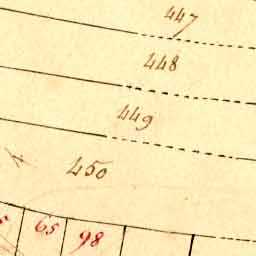 447
448
449
450
65 98